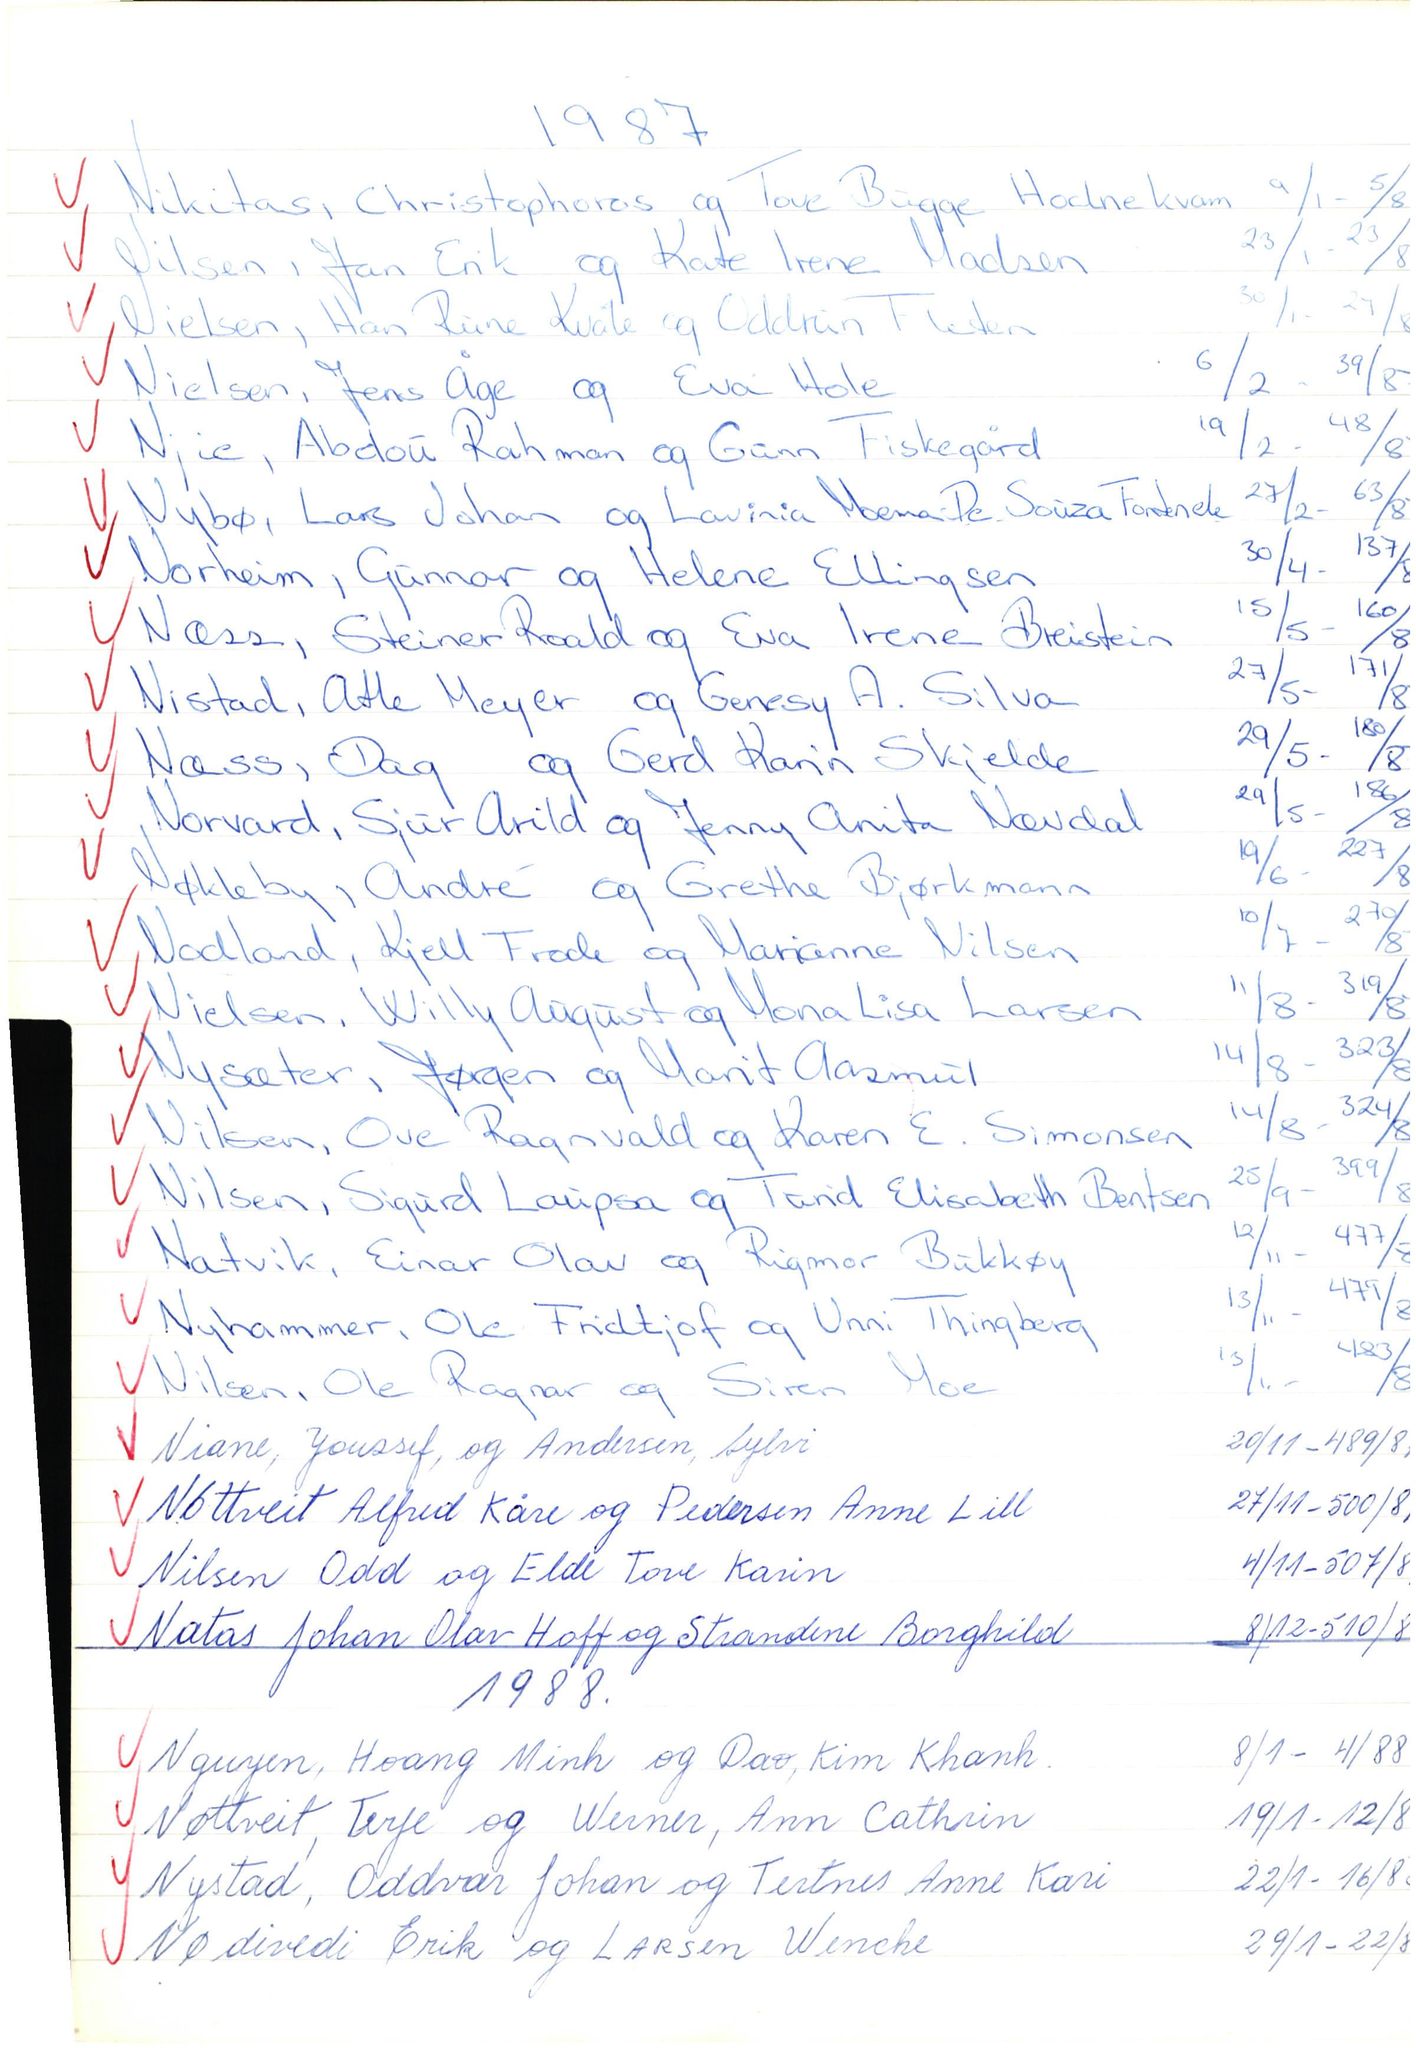 1987
Nikitas, Christophoros og Tove Bugge Hodnekvam 9/1 - 5/8
Nilsen, Jan Erik og Kate Irene Madsen 23/1 - 23/8
Nielsen, Han Rune Kvåle og Oddrun Flesten 30/1 - 27/8
Nielsen, Jens Åge og Eva Hole 6/2 - 39/8
Njie, Abdou Rahman og Gunn Fiskegård 19/2 - 48/8
Nybø, Lars Johan og Lavinia Moema De Souza 27/2 - 63/8
Norheim, Gunnar og Helene Ellingsen 30/4 - 137/8
Næss, Steiner Roald og Eva Irene Breistein 15/5 - 160/8
Nistad, Atle Meyer og Genesy A. Silva 27/5 - 171/8
Næss, Dag og Gerd Karin Skjelde 29/5 - 180/8
Norvard, Sjur Arild og Jenny Anita Nævdal 29/5 - 186/8
Nøkleby, André og Grethe Bjørkmann 19/6 - 227/8
Nodland, Kjell Frode og Marianne Nilsen 10/7 - 270/8
Nielsen, Willy August og Mona Lisa Larsen 11/8 - 319/8
Nysæter, Jørgen og Marit Aasmul 14/8 - 323/8
Nilsen, Ove Ragnvald og Karen E. Simonsen 14/8 - 324/8
Nilsen, Sigurd Laupsa og Turid Elisabeth Bentsen 25/9 - 399/8
Natvik, Einar Olav og Rigmor Bukkøy 12/11 - 477/8
Nyhammer, Ole Fridtjof og Unni Thingberg 13/11 - 479/8
Nilsen, Ole Ragnar og Siren Moe 13/11 - 483/8
Niane, Youssef, og Andersen, Sylvi 20/11 - 489/8
Nöttveit Alfred Kåre og Pedersen Anne Lill 27/11 - 500/8
Nilsen Odd og Elde Tove Karin 4/11 - 507/8
Natas Johan Olav Hoff og Strandene Borghild 8/12 - 510/8
1988.
Nguyen, Hoang Minh og Dao, Kim Khanh. 8/1 - 4/88
Nøttveit, Terje og Werner, Ann Cathrin 19/1 - 12/8
Nystad, Oddvar Johan og Tertnes Anne Kari 22/1 - 16/8
Nødivedi Erik og LARSEN Wenche 29/1 - 22/8